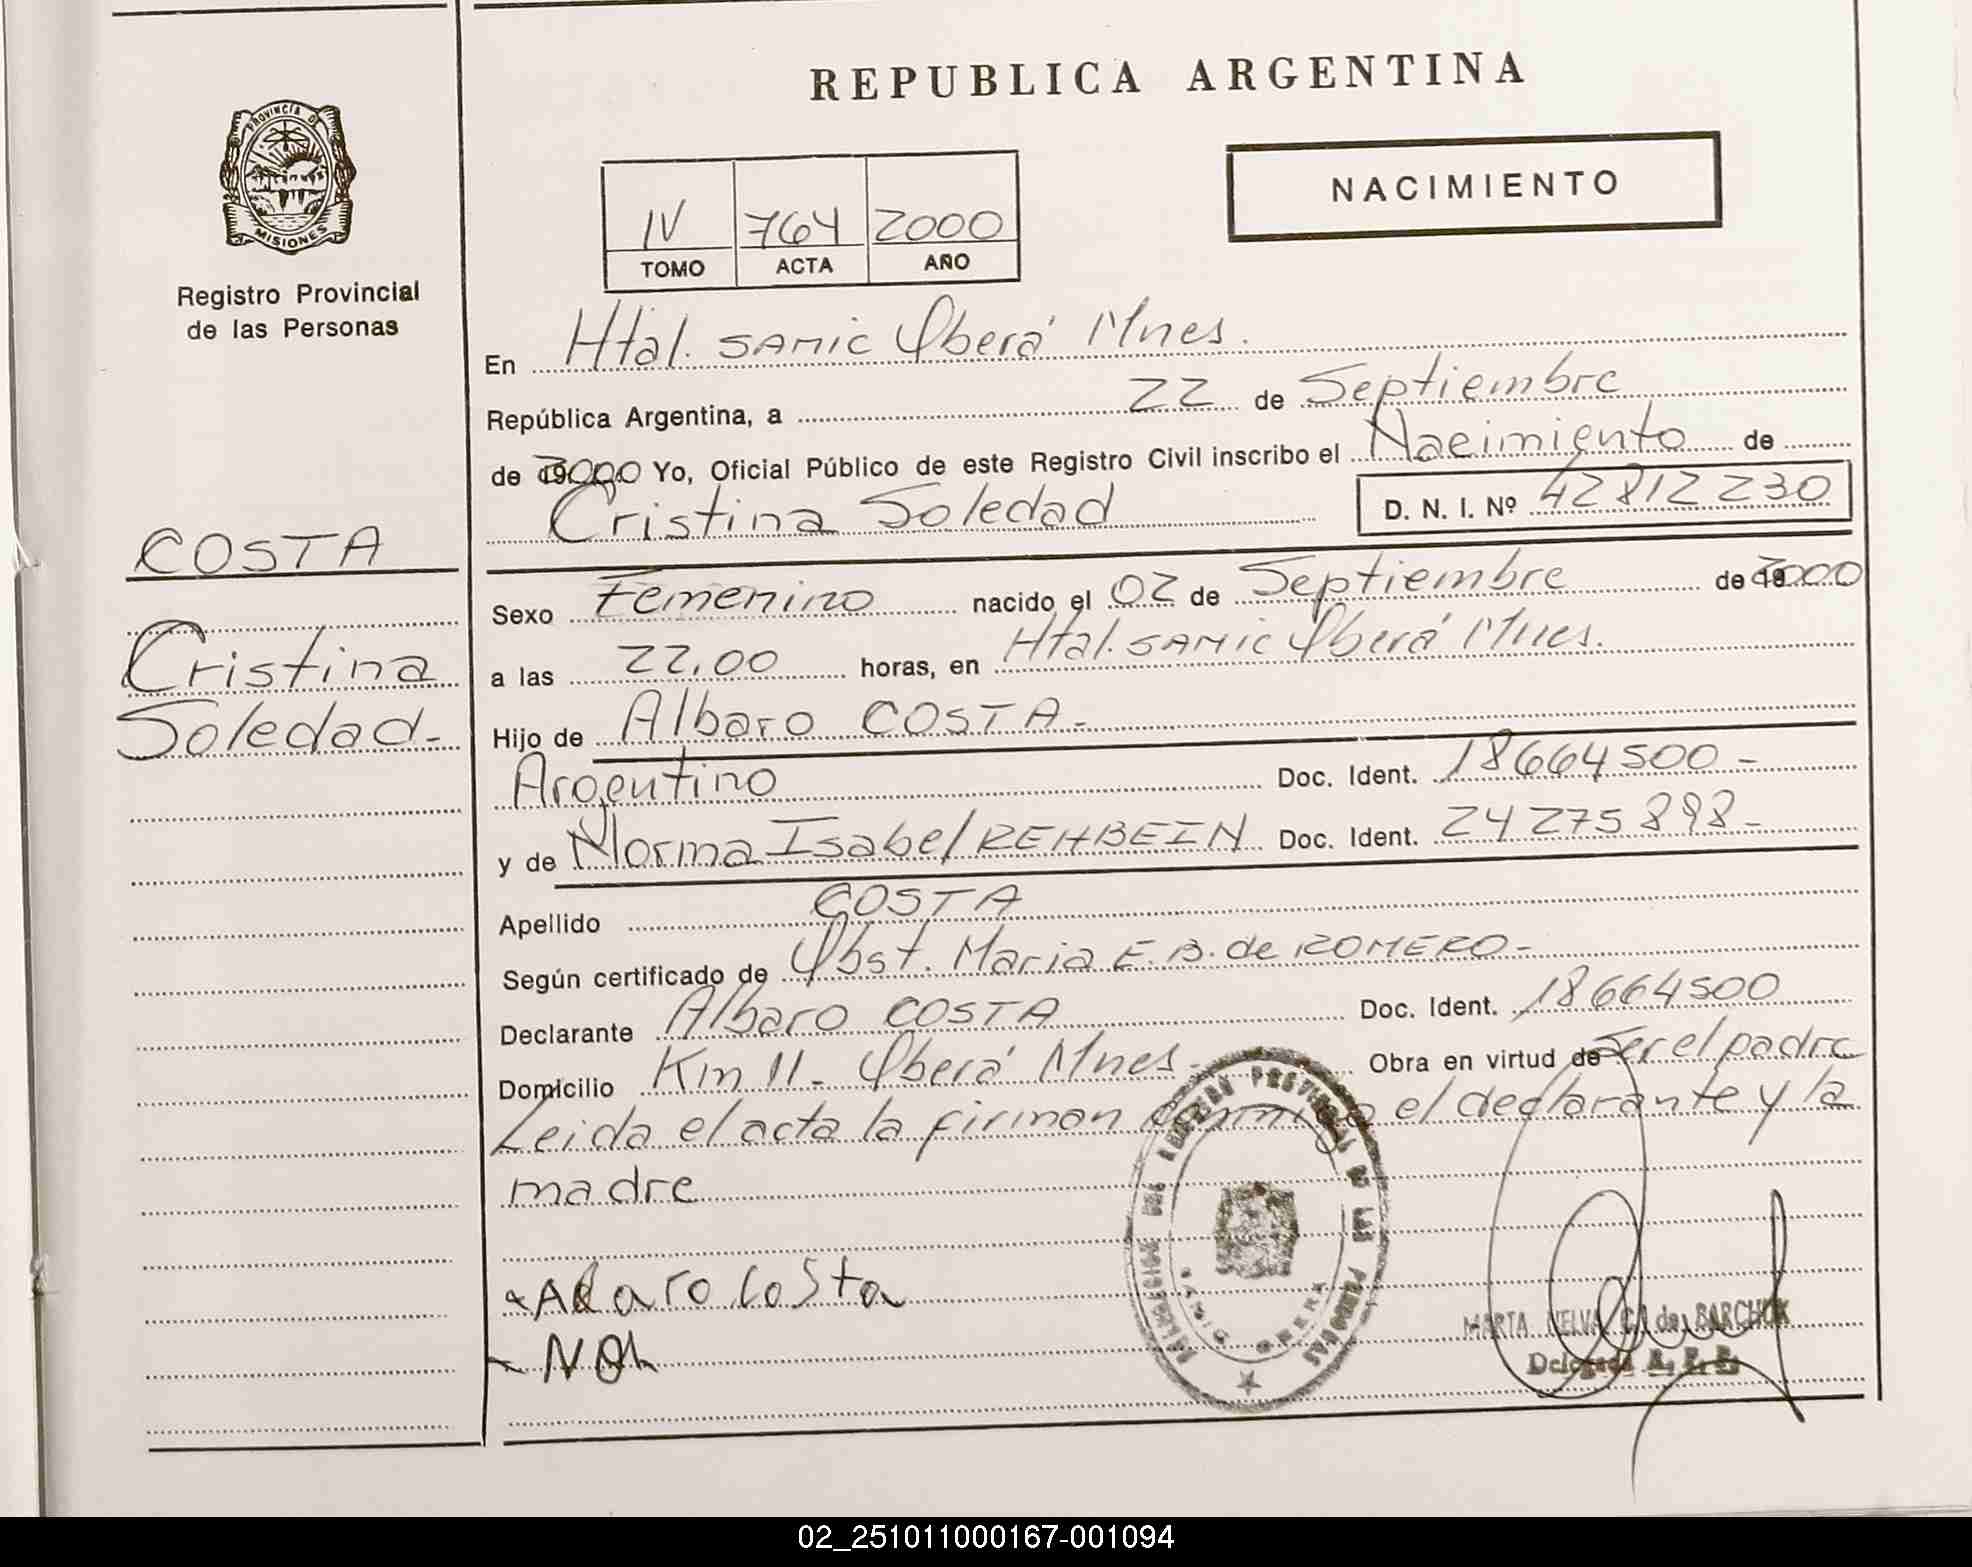 REPUBLICA ARGENTINA
PROVINCIA DE
MISIONES
Registro Provincial
de las Personas
NACIMIENTO
IV 764 2000
TOMO ACTA AÑO
En Htal. SAMIC Oberá Mnes.
República Argentina, a 22 de Septiembre
de 2000 Yo, Oficial Público de este Registro Civil inscribo el Nacimiento de
Cristina Soledad D. N. I. Nº 42812230
COSTA
Cristina
Soledad-
Sexo Femenino nacido el 02 de Septiembre de 2000
a las 22,00 horas, en Htal. SAMIC Oberá Mnes.
Hijo de Albaro COSTA-
Argentino Doc. Ident. 18664500-
y de Norma Isabel REHBEIN Doc. Ident. 24275898-
Apellido COSTA
Según certificado de Obst. Maria E. B. de ROMERO-
Declarante Albaro COSTA Doc. Ident. 18664500
Domicilio Km 11- Oberá Mnes- Obra en virtud de Ser el padre
Leida el acta la firman conmigo el declarante y la
madre
Costa
MARTA NELVA C. de BARCHUK
Delegada
02_251011000167-001094